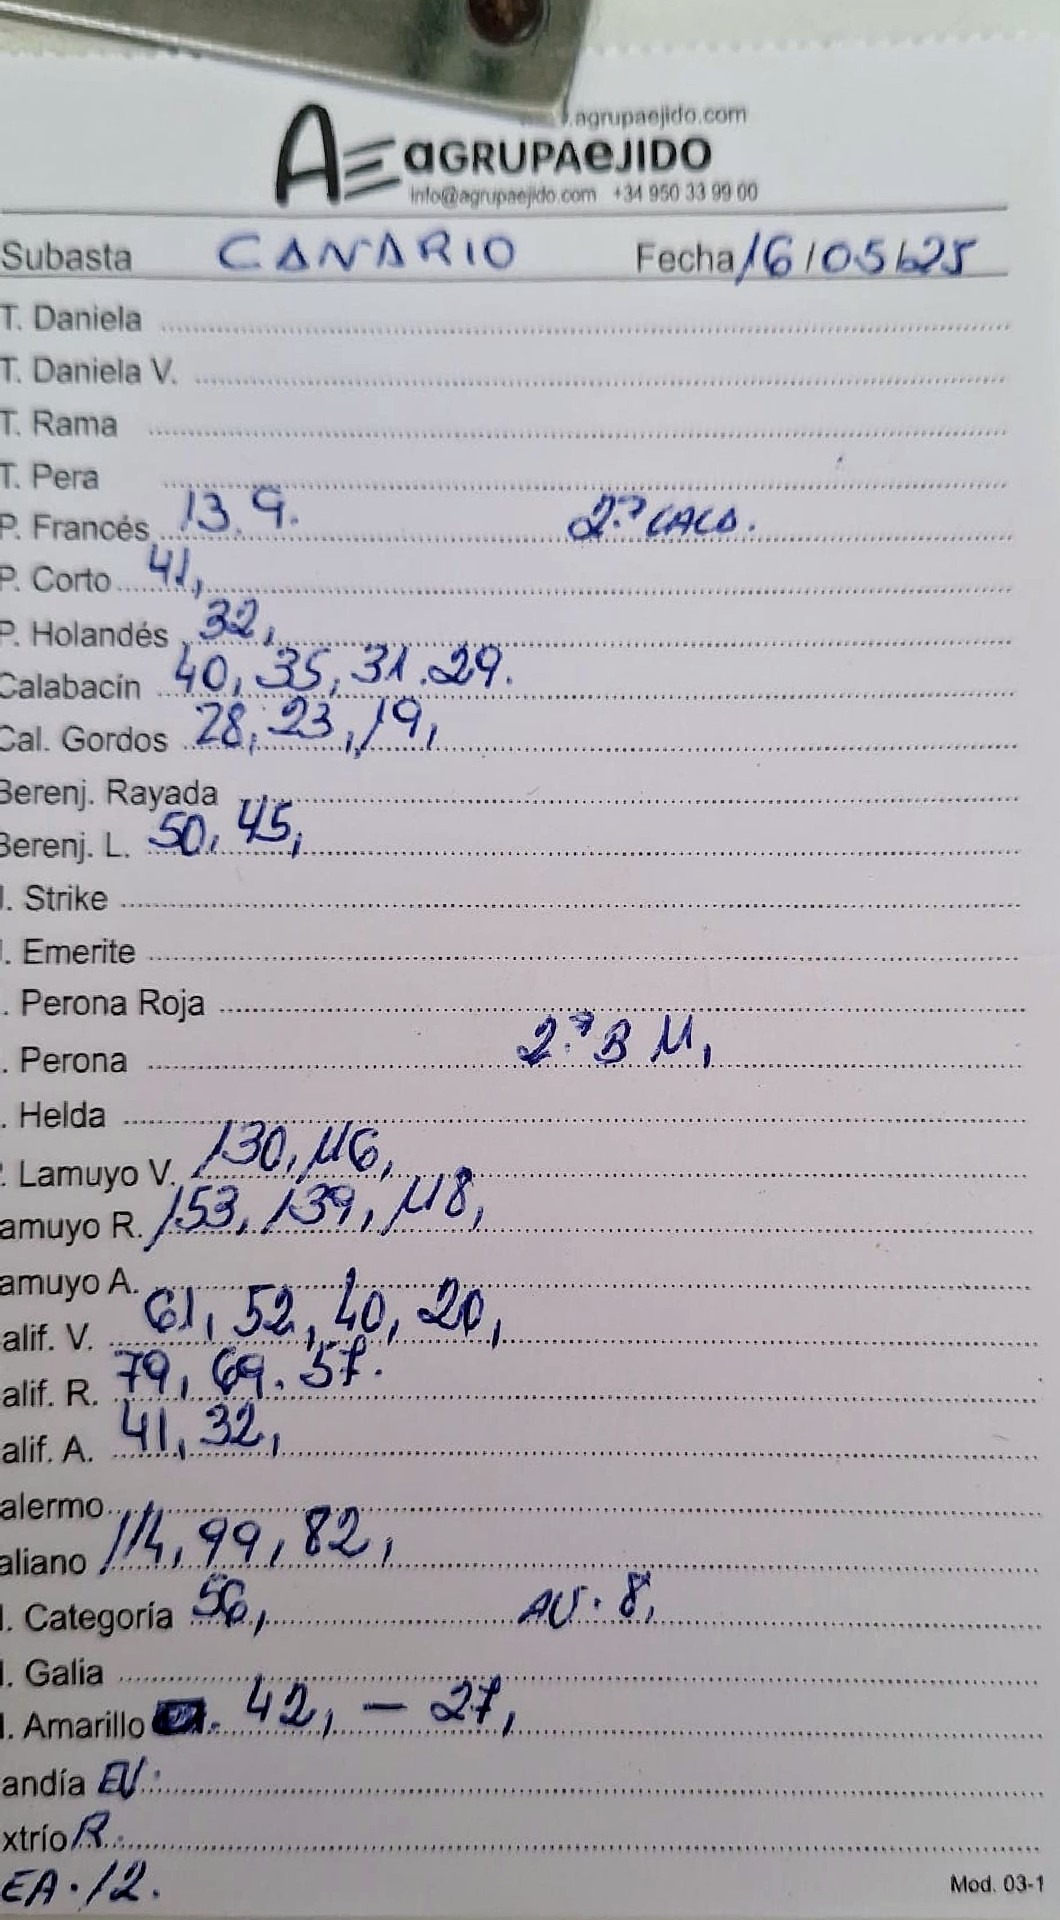 .agrupaejido.com
AE aGRUPAeJIDO
info@agrupaejido.com +34 950 33 99 00
Subasta CANARIO Fecha 16/05/25
T. Daniela
T. Daniela V.
T. Rama
T. Pera
P. Francés 13.9. 2.ª CALD.
P. Corto 41,
P. Holandés 32,
Calabacín 40, 35, 31. 29.
Cal. Gordos 28, 23, 19,
Berenj. Rayada
Berenj. L. 50, 45,
J. Strike
J. Emerite
. Perona Roja
. Perona 2.ª B M,
. Helda
. Lamuyo V. 130, 116,
amuyo R. 153, 139, 118,
amuyo A.
alif. V. 61, 52, 40, 20,
alif. R. 79, 69. 57.
alif. A. 41, 32,
alermo
aliano 114, 99, 82,
I. Categoría 56, AV. 8,
I. Galia
I. Amarillo 42, - 27,
andía EV.
xtrío R.
EA. 12. Mod. 03-1